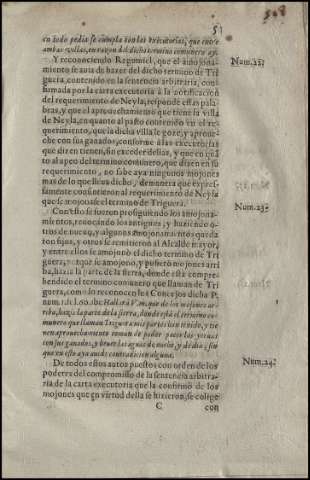 51
en todo pedia se cumpla con las executorias, que entre
ambas villas, en razon del dicho termino comunero ay.
Y reconociendo Regumiel, que el amojona-
Num. 22.
miento se auia de hazer del dicho termino de Tri
guera, contenido en la sentencia arbitraria, con-
firmada por la carta executoria à la notificacion
del requerimiento de Neyla, responde estas pala-
bras, y que el aprouechamiento que tiene la villa
de Neyla, en quanto al pasto contenido en el re-
querimiento, que la dicha villa le goze, y aproue-
che con sus ganados, conforme à las executorias
que dizen tienen, sin exceder dellas, y que en quã
to al apeo del termino comunero, que dizen en su
requerimiento, no sabe aya ningunos mojones
mas de lo que lleua dicho, demanera que expres-
samente consintieron al requerimiento de Neyla
que se amojonasse el termino de Triguera.
Con esto se fueron prosiguiendo los amojona-
Num. 23.
mientos, renouando los antiguos, y haziendo o-
tros de nueuo, y algunos amojonamientos queda
ron fijos, y otros se remitieron al Alcalde mayor,
y entre ellos se amojonò el dicho termino de Tri-
guera, porque se amojonò, y pusierõ mojones arri
ba, hazia la parte de la sierra, donde està compre-
hendido el termino comunero que llaman de Tri
guera, como lo reconocen los Concejos dicha P.
num. 1. de l. 00. ibi: Hallarà V. m. que de los mojones ar-
riba, hazia la parte de la sierra, donde està el termino co-
munero que llaman Triguera mis partes han tenido, y tie-
nen aprouechamiento comun de poder pacer las yeruas
con sus ganados, y beuer las aguas de noche, y de dia, sin
que en esto aya auido contradicion alguna.
De todos estos autos puestos con orden de los
Num. 24.
poderes del compromisso de la sentencia arbitra-
ria de la carta executoria que la confirmò de los
mojones que en virtud della se hizieron, se colige
C
con